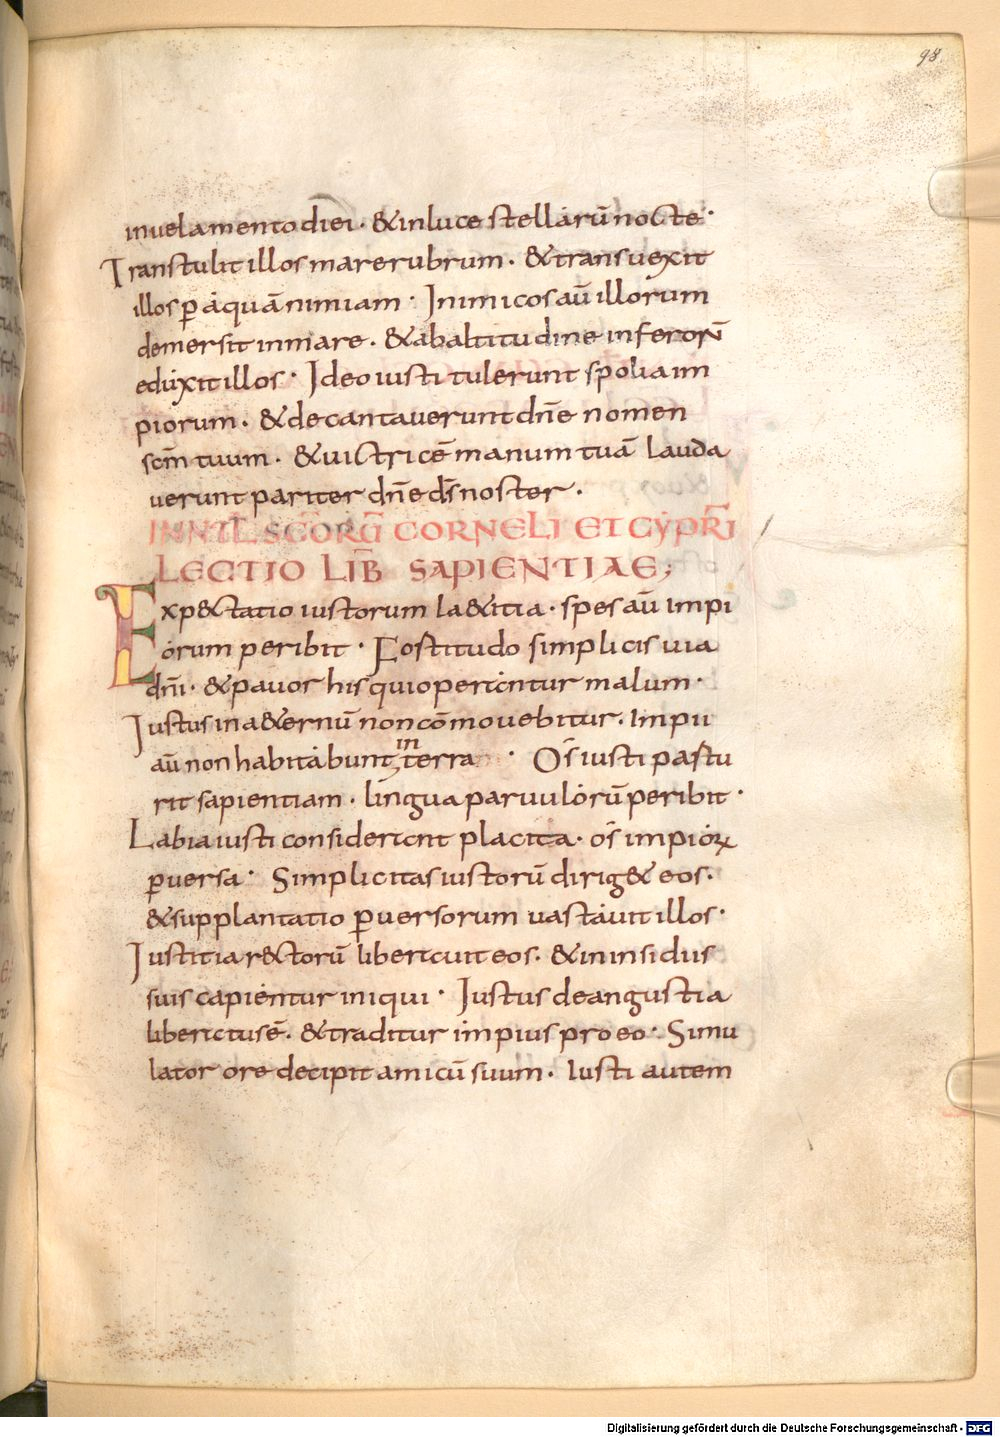 98
inuelamento diei · & in luce stellarū nocte ·
Transtulit illos mare rubrum · & transuexit
illos ꝑ aquā nimiam · Inimicos aū illorum
demersit in mare · & ab altitudine inferorū
eduxit illos · Ideo iusti tulerunt spolia im
piorum · & decantaverunt dn̄e nomen
scm̄ tuum · & uictricē manum tuā lauda
uerunt pariter dn̄e ds̄ noster ·
IN NTL̄ SC̄ORŪ CORNELI ET CYPRI
LECTIO LIB̄ SAPIENTIAE;
Exp&tatio iustorum la&itia · spes aū impi
orum peribit · Fostitudo simplicis uia
dn̄i · & pavor his qui operantur malum ·
Iustus in a&ernū non cōmouebitur · Impii
aū non habitabunt in terra · Os̄ iusti partu
rit sapientiam · lingua paruulorū peribit ·
Labia iusti considerant placita · os̄ impioꝝ
ꝑuersa · Simplicitas iustorū dirig& eos ·
& supplantatio ꝑuersorum uastauit illos ·
Iustitia r&torū liberauit eos · & in insidiis
suis capientur iniqui · Iustus de angustia
liberatus ē · & traditur impius pro eo · Simu
lator ore decipit amicū suum · Iusti autem
Digitalisierung gefördert durch die Deutsche Forschungsgemeinschaft - DFG